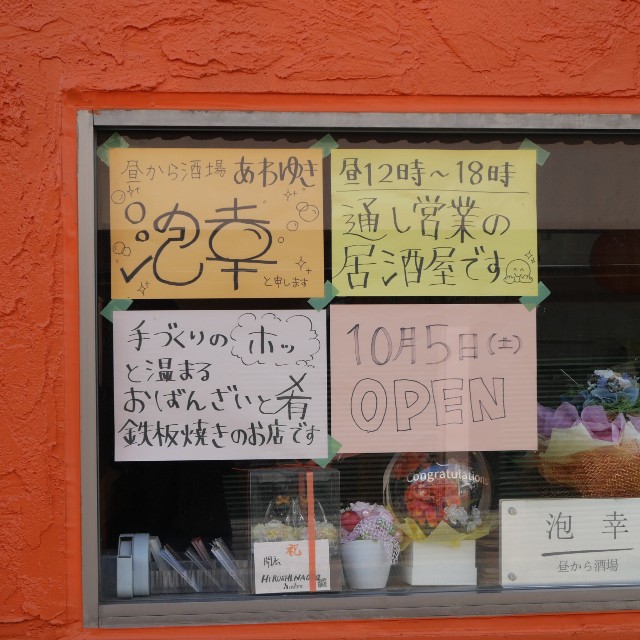 昼から酒場 あわゆき
泡幸
と申します
昼12時～18時
通し営業の
居酒屋です
手づくりの ホッ
と温まる
おばんざいと肴
鉄板焼きのお店です
10月5日(土)
OPEN
Congratulations
祝
開店
HIROSHI NAGAI
泡 幸
昼から酒場